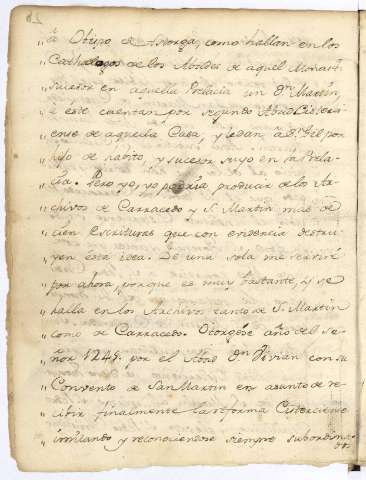 ,, à Obispo de Astorga, como hallan en los
,, Cathalogos de los Abades de aquel Monast.
,, sucesor en aquella Prelacia un Dn. Martin,
,, à este cuentan por segundo Abad Cisterci-
,, ense de aquella Casa, y le dan, à Dn. Gil por
,, hijo de habito, y sucesor suyo en la Prela-
,, cia. Pero yo, yo podria producir de los Ar-
,, chivos de Carracedo y S. Martin mas de
,, cien Escrituras que con evidencia destru-
,, yen esta idea. De una sola me serviré
,, por ahora, porque es muy bastante, y se
,, halla en los Archivos tanto de S. Martin
,, como de Carracedo. Otorgóse año del Se-
,, ñor 1249. por el Abad Dn. Vivian con su
,, Convento de San Martin en asunto de re-
,, cibir finalmente la reforma Cisterciense
,, imitando y reconociendose siempre subordina-